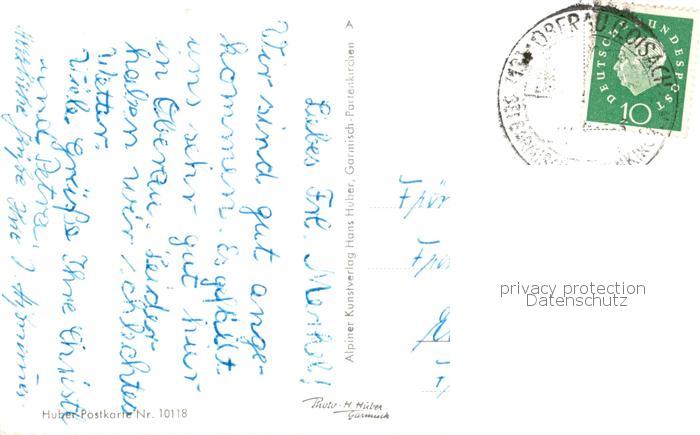 Liebes Frl. Merkel!
Wir sind gut ange-
kommen. Es gefällt
uns sehr gut hier
in Oberau. Leider
haben wir schlechtes
Wetter.
Viele Grüße Ihre Christa
und Petra.
Herzliche Grüße Ihre
Alpiner Kunstverlag Hans Huber, Garmisch-Partenkirchen
Huber-Postkarte Nr. 10118
Photo-H. Huber
Garmisch
(13b) OBERAU (LOISACH)
DEUTSCHE BUNDESPOST
10
privacy protection
Datenschutz